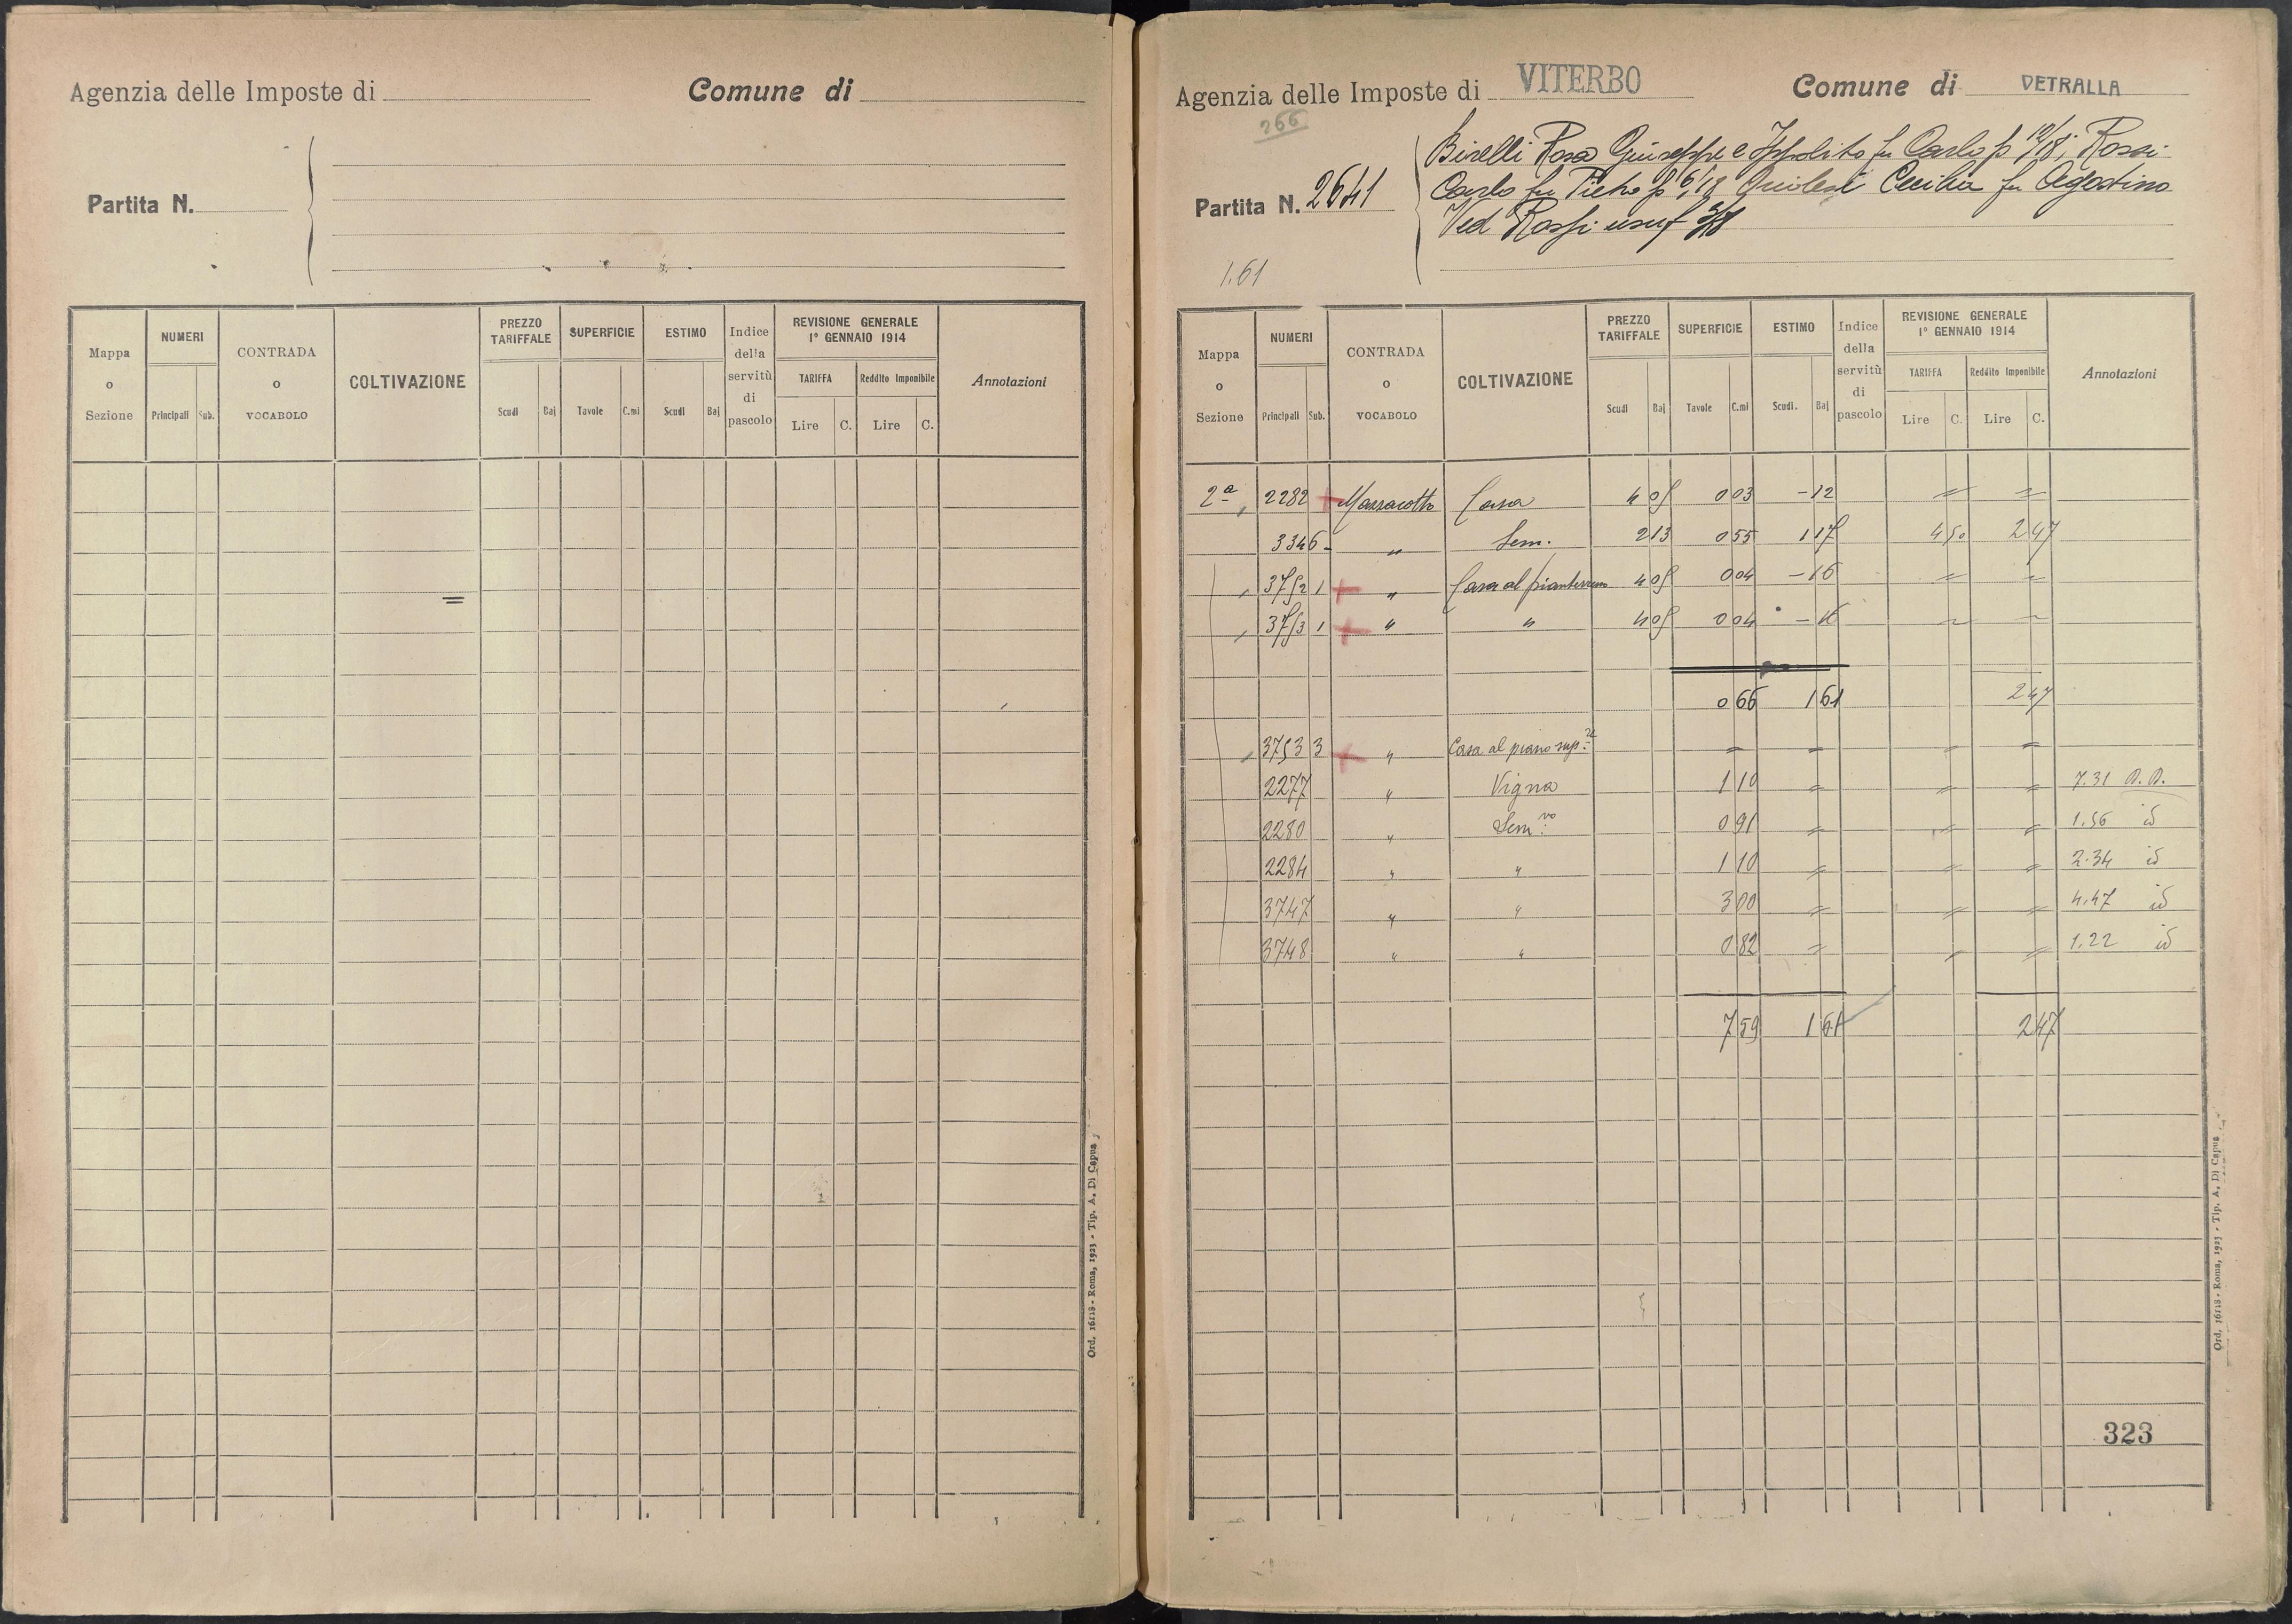 Agenzia delle Imposte di
Comune di
Partita N.
Mappa o Sezione
NUMERI
Principali Sub.
CONTRADA o VOCABOLO
COLTIVAZIONE
PREZZO TARIFFALE
Scudi Baj
SUPERFICIE
Tavole C.mi
ESTIMO
Scudi Baj
Indice della servitù di pascolo
REVISIONE GENERALE
1° GENNAIO 1914
TARIFFA
Lire C.
Reddito Imponibile
Lire C.
Annotazioni
Ord. 16118 - Roma, 1923 - Tip. A. Di Capua
Agenzia delle Imposte di VITERBO
Comune di VETRALLA
266
Partita N. 2641
Birelli Rosa Giuseppe e Ippolito fu Carlo p 12/18; Rossi
Carlo fu Pietro p 6/18 Cecilia fu Agostino
Ved Rossi usuf
1.61
Mappa o Sezione
NUMERI
Principali Sub.
CONTRADA o VOCABOLO
COLTIVAZIONE
PREZZO TARIFFALE
Scudi Baj
SUPERFICIE
Tavole C.mi
ESTIMO
Scudi. Baj
Indice della servitù di pascolo
REVISIONE GENERALE
1° GENNAIO 1914
TARIFFA
Lire C.
Reddito Imponibile
Lire C.
Annotazioni
2a , 2282 + Mazzacotto Casa 4 05 0 03 - 12 = =
3346 - " Sem. 2 13 0 55 1 17 4 50 2 47
, 3752 1 + " Casa al pianterreno 4 05 0 04 - 16 = =
, 3753 1 + " " 4 05 0 04 - 16
0 66 1 61 2 47
, 3753 3 + " Casa al piano sup.re = = = =
2277 " Vigna 1 10 = = = 7.31 D.D.
2280 " Sem.vo 0 91 = = = 1.56 id
2284 " " 1 10 = = = 2.34 id
3747 " " 3 00 = = = 4.47 id
3748 " " 0 82 = = = 1.22 id
7 59 1 61 2 47
323
Ord. 16118 - Roma, 1923 - Tip. A. Di Capua